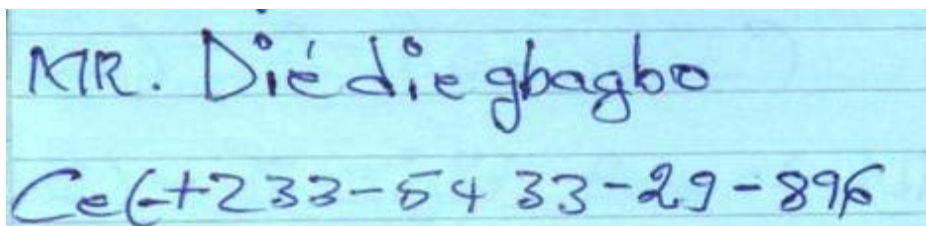 MR. Diédie gbagbo
Cel+233-5433-29-896